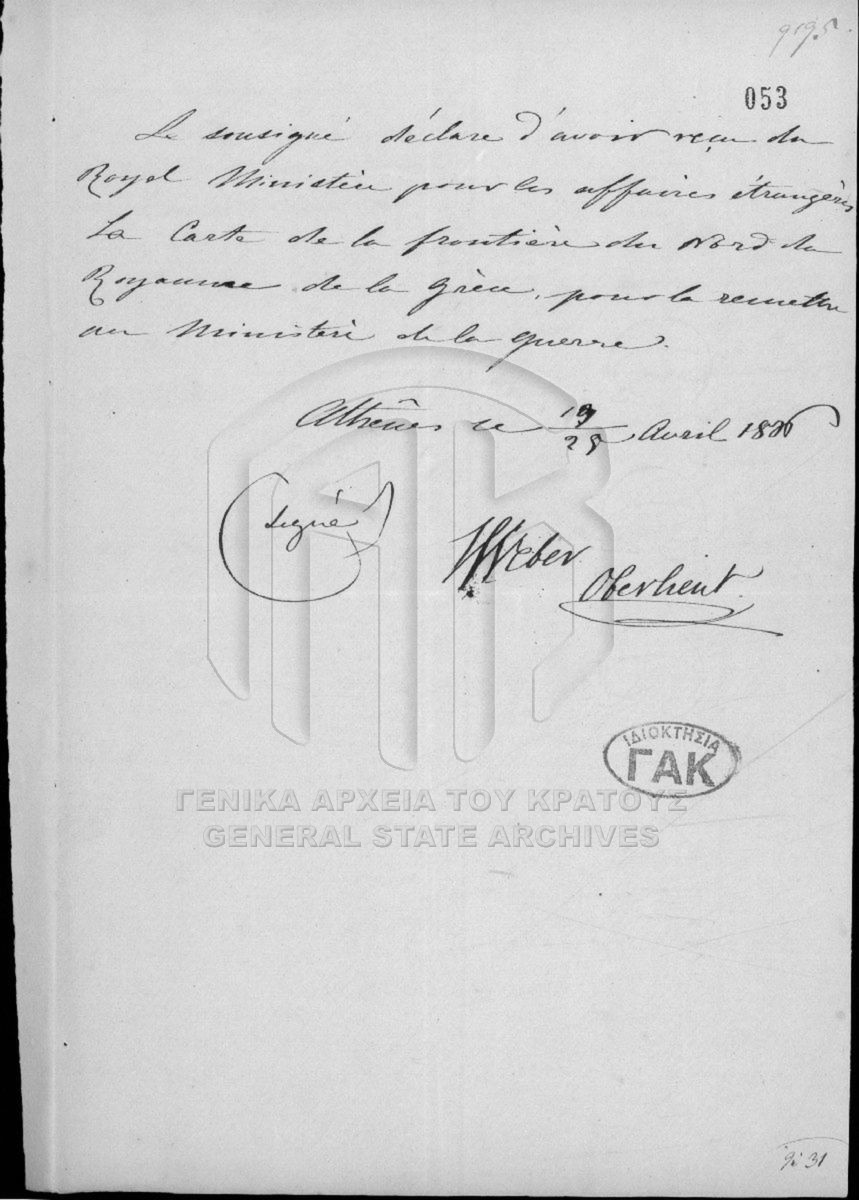 9195
053
Le sousigné déclare d'avoir reçu du
Royal Ministère pour les affaires étrangères
La Carte de la frontière du Nord du
Royaume de la Grèce, pour la remettre
au Ministère de la guerre.
Athènes le Avril
(signé) Weber
Oberlieut.
ΙΔΙΟΚΤΗΣΙΑ
ΓΑΚ
ΓΕΝΙΚΑ ΑΡΧΕΙΑ ΤΟΥ ΚΡΑΤΟΥΣ
GENERAL STATE ARCHIVES
31